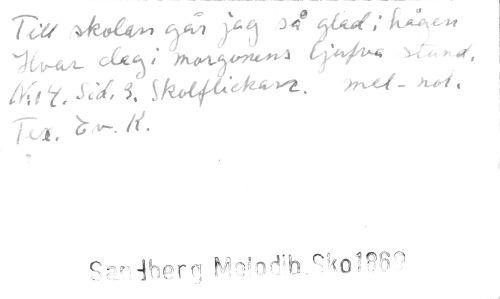 Till skolan går jag så glad i hågen
Hvar dag i morgonens ljufva stund.
N:14. Sid. 3. Skolflickan. mel-not.
Tex. Ev. K.
Sandberg Melodib. Sko1869